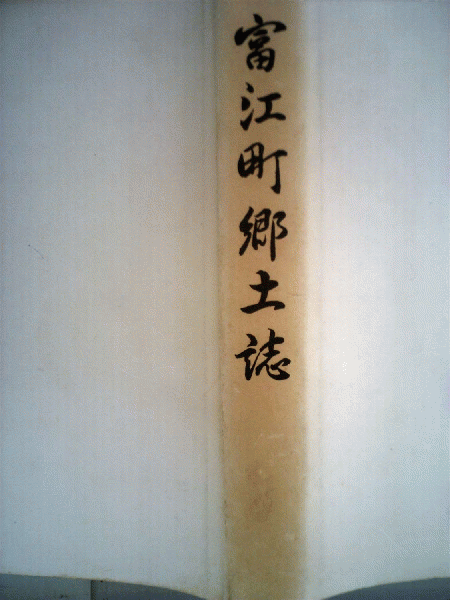 富江町郷土誌